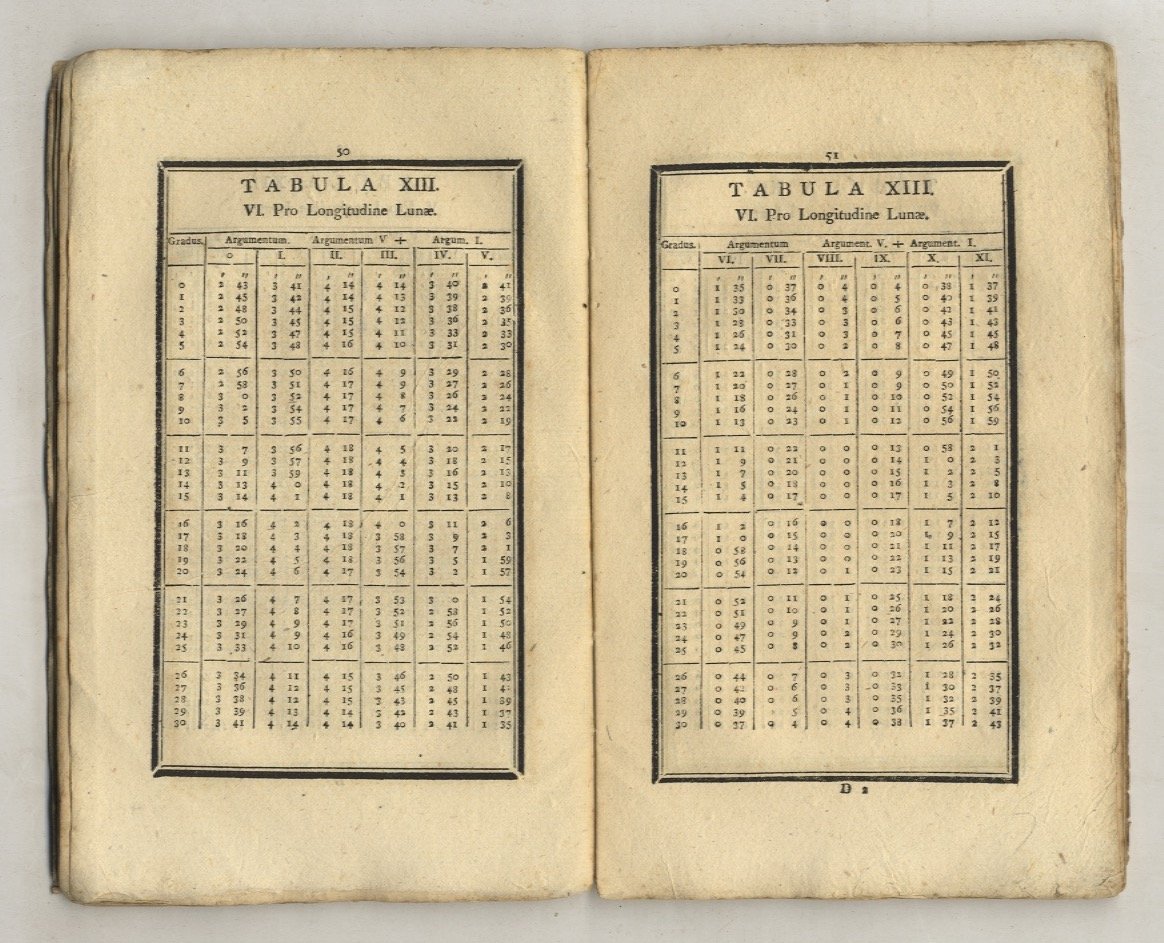 50
TABULA XIII.
VI. Pro Longitudine Lunæ.
Gradus. Argumentum. Argumentum V + Argum. I.
0 I. II. III. IV. V.
′ ″ ′ ″ ′ ″ ′ ″ ′ ″ ′ ″
0 2 43 3 41 4 14 4 14 3 40 2 41
1 2 45 3 42 4 14 4 13 3 39 2 39
2 2 48 3 44 4 15 4 12 3 38 2 36
3 2 50 3 45 4 15 4 12 3 36 2 35
4 2 52 3 47 4 15 4 11 3 33 2 33
5 2 54 3 48 4 16 4 10 3 31 2 30
6 2 56 3 50 4 16 4 9 3 29 2 28
7 2 58 3 51 4 17 4 9 3 27 2 26
8 3 0 3 52 4 17 4 8 3 26 2 24
9 3 2 3 54 4 17 4 7 3 24 2 22
10 3 5 3 55 4 17 4 6 3 22 2 19
11 3 7 3 56 4 18 4 5 3 20 2 17
12 3 9 3 57 4 18 4 4 3 18 2 15
13 3 11 3 59 4 18 4 3 3 16 2 13
14 3 13 4 0 4 18 4 2 3 15 2 10
15 3 14 4 1 4 18 4 1 3 13 2 8
16 3 16 4 2 4 18 4 0 3 11 2 6
17 3 18 4 3 4 18 3 58 3 9 2 3
18 3 20 4 4 4 18 3 57 3 7 2 1
19 3 22 4 5 4 18 3 56 3 5 1 59
20 3 24 4 6 4 17 3 54 3 2 1 57
21 3 26 4 7 4 17 3 53 3 0 1 54
22 3 27 4 8 4 17 3 52 2 58 1 52
23 3 29 4 9 4 17 3 51 2 56 1 50
24 3 31 4 9 4 16 3 49 2 54 1 48
25 3 33 4 10 4 16 3 48 2 52 1 46
26 3 34 4 11 4 15 3 46 2 50 1 43
27 3 36 4 12 4 15 3 45 2 48 1
28 3 38 4 12 4 15 3 43 2 45 1 39
29 3 39 4 13 4 14 3 42 2 43 1 37
30 3 41 4 14 4 14 3 40 2 41 1 35
51
TABULA XIII.
VI. Pro Longitudine Lunæ.
Gradus. Argumentum Argument. V. + Argument. I.
VI. VII. VIII. IX. X. XI.
′ ″ ′ ″ ′ ″ ′ ″ ′ ″ ′ ″
0 1 35 0 37 0 4 0 4 0 38 1 37
1 1 33 0 36 0 4 0 5 0 40 1 39
2 1 30 0 34 0 3 0 6 0 42 1 41
3 1 28 0 33 0 3 0 6 0 43 1 43
4 1 26 0 31 0 3 0 7 0 45 1 45
5 1 24 0 30 0 2 0 8 0 47 1 48
6 1 22 0 28 0 2 0 9 0 49 1 50
7 1 20 0 27 0 1 0 9 0 50 1 52
8 1 18 0 26 0 1 0 10 0 52 1 54
9 1 16 0 24 0 1 0 11 0 54 1 56
10 1 13 0 23 0 1 0 12 0 56 1 59
11 1 11 0 22 0 0 0 13 0 58 2 1
12 1 9 0 21 0 0 0 14 1 0 2 3
13 1 7 0 20 0 0 0 15 1 2 2 5
14 1 5 0 18 0 0 0 16 1 3 2 8
15 1 4 0 17 0 0 0 17 1 5 2 10
16 1 2 0 16 0 0 0 18 1 7 2 12
17 1 0 0 15 0 0 0 20 1 9 2 15
18 0 58 0 14 0 0 0 21 1 11 2 17
19 0 56 0 13 0 0 0 22 1 13 2 19
20 0 54 0 12 0 1 0 23 1 15 2 21
21 0 52 0 11 0 1 0 25 1 18 2 24
22 0 51 0 10 0 1 0 26 1 20 2 26
23 0 49 0 9 0 1 0 27 1 22 2 28
24 0 47 0 9 0 2 0 29 1 24 2 30
25 0 45 0 8 0 2 0 30 1 26 2 32
26 0 44 0 7 0 3 0 32 1 28 2 35
27 0 42 0 6 0 3 0 33 1 30 2 37
28 0 40 0 6 0 3 0 35 1 32 2 39
29 0 39 0 5 0 4 0 36 1 35 2 41
30 0 37 0 4 0 4 0 38 1 37 2 43
D 2